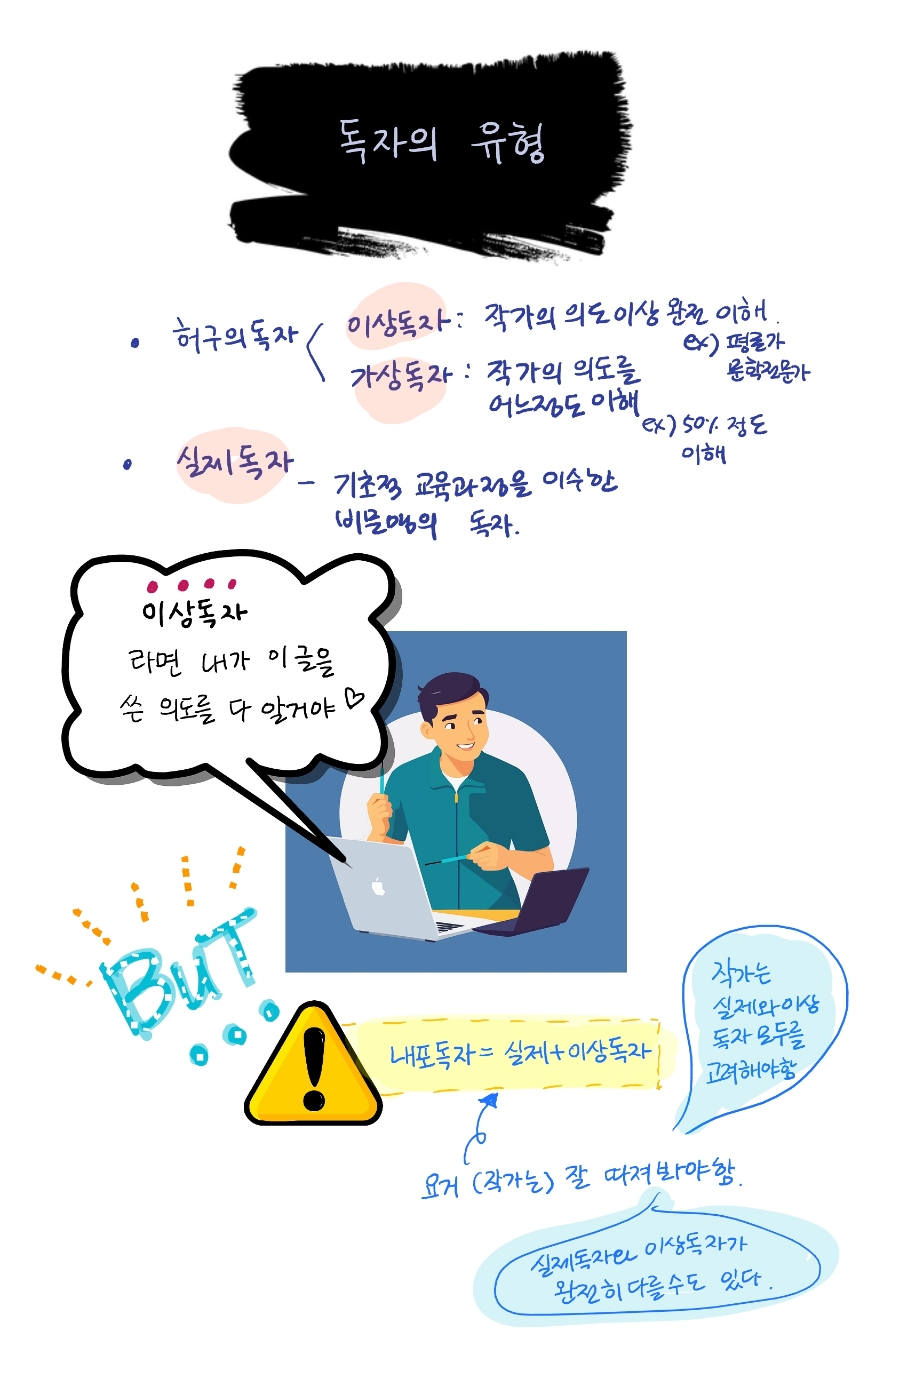 독자의 유형
• 허구의독자 < 이상독자 : 작가의 의도이상 완전 이해.
ex) 평론가
문학전문가
가상독자 : 작가의 의도를
어느정도 이해
ex) 50% 정도
이해
• 실제독자
- 기초적 교육과정을 이수한
비문맹의 독자.
이상독자
라면 내가 이글을
쓴 의도를 다 알거야♡
BUT
내포독자 = 실제+이상독자
작가는
실제와이상
독자 모두를
고려해야함
요거 (작가는) 잘 따져봐야함.
실제독자와 이상독자가
완전히 다를수도 있다.